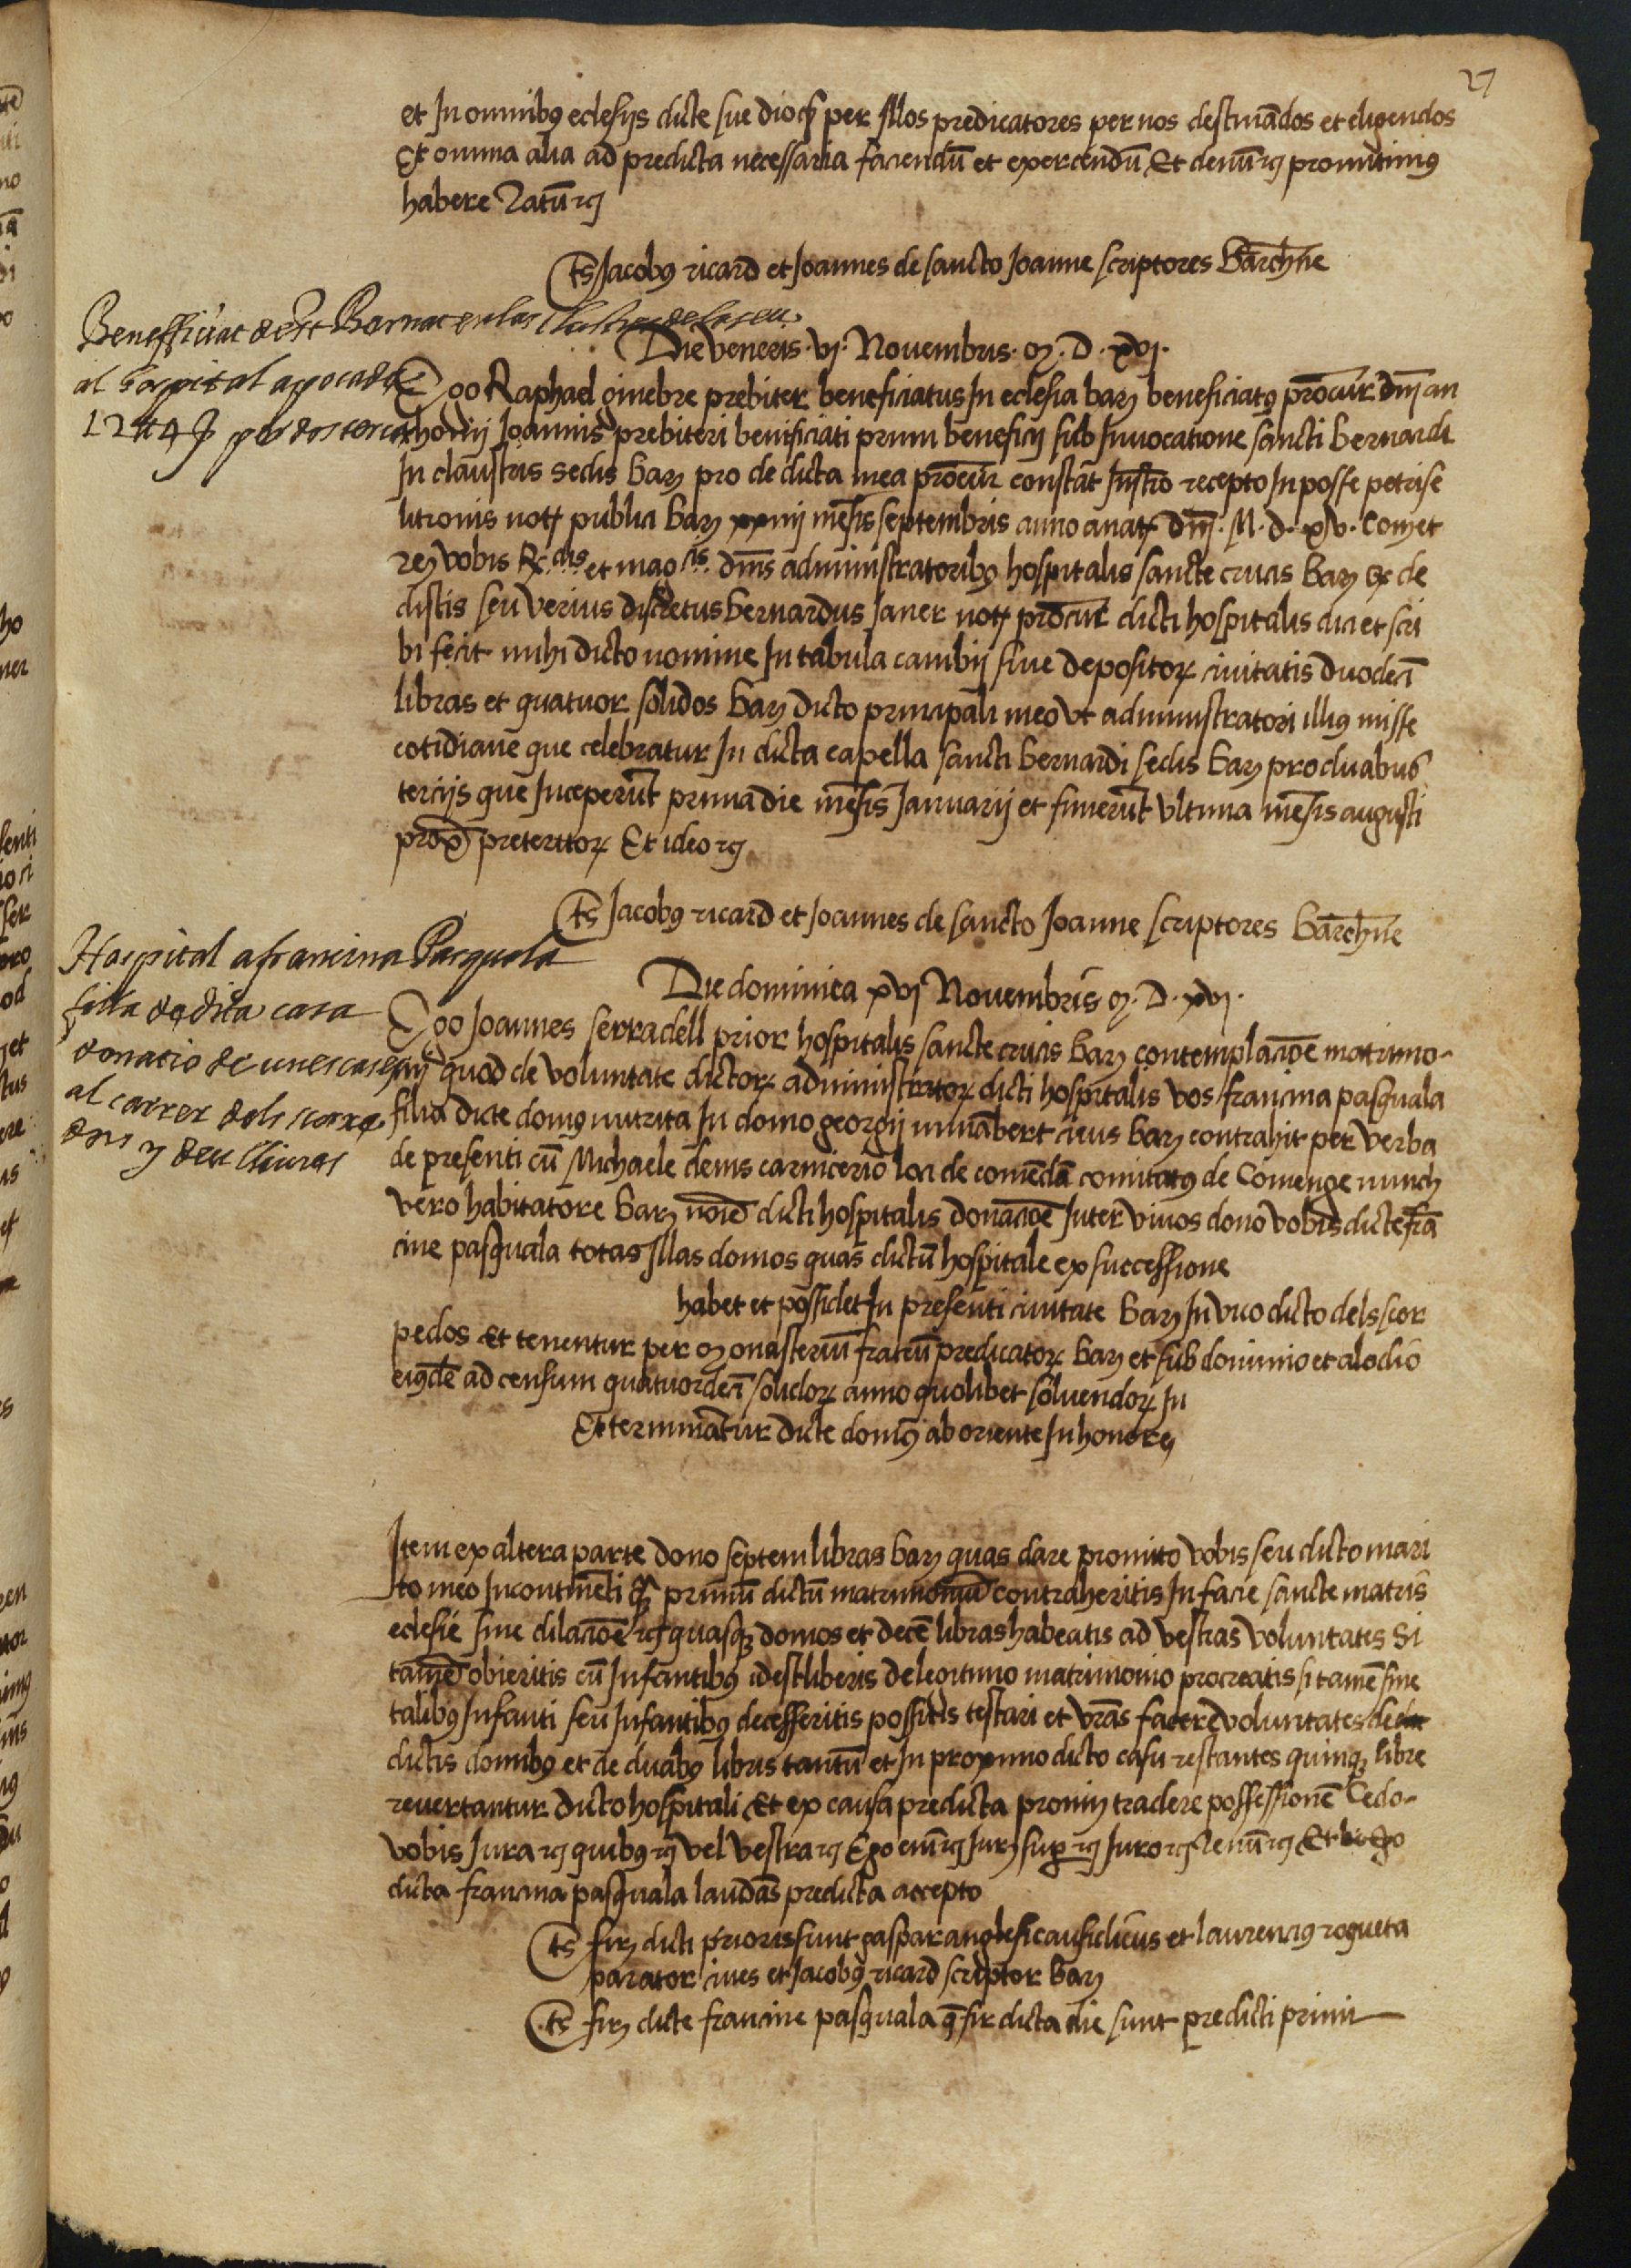 27
et In omnibus eclesijs dicte sue dioc per Illos predicatores per nos destinādos et eligendos
Et omnia alia ad predicta necessaria faciendū et exercendū Et demū rc promitimus
habere Ratū rc
Ts Jacobus ricard et Joannes de sancto Joanne scriptores Barchne
Benefficiat de St Bernat en las claustras de la seu
al hospital apoca de
12 ₶ 4 s per dos tercias
Die veneris · vj · Novembris · M · D · xvj ·
Ego Raphael ginebre prebiter beneficiatus In eclesia barn beneficiatus procur dnj an
thonij Joannis prebiteri benificiati primi beneficij sub Invocatione sancti bernardi
In claustris sedis barn pro de dicta mea procur constāt Instro recepto In posse petri se
litronis not publici barn xxiiij mēsis septembris anno a nat dnj · M · d · xv · Comet
rc vobis Rdis et magcis dnis administratoribus hospitalis sancte crucis barn qd de
distis seu verius discretus bernardus Janer not procur dicti hospitalis dici et scri
bi fecit mihi dicto nomine In tabula cambij sive depositor civitatis duodecī
libras et quatuor solidos barn dicto principali meo vt administratori illius misse
cotidiane que celebratur In dicta capella sancti bernardi sedis barn pro duabus
tercijs que Inceperūt prima die mēsis Januarij et finierūt vltima mēsis augusti
prox preteritor Et ideo rc
Ts Jacobus ricard et Joannes de sancto Joanne scriptores Barchne
Hospital a francina Pasquala
filla de dita casa
donatio de unes cases
al carrer dels scorpe
dos y deu lliures
Die dominica xvj Novembris M · D · xvj ·
Ego Joannes serradell prior hospitalis sancte crucis barn contemplacioē matrimo-
nij quod de voluntate dictor administrator dicti hospitalis vos francina pasquala
filia dicte domus nutrita In domo georgij civis barn contrahit per verba
de presenti cū Michaele denis carnicerio loci de comēda comitatus de Comenge nunch
vero habitatore barn noīe dicti hospitalis donacioē Inter vivos dono vobis dicte frā
cine pasquala totas Illas domos quas dictū hospitale ex successione
habet et possidet In presenti civitate barn In vico dicto dels scor
pedos Et tenentur per Monasteriū fratrū predicator barn et sub dominio et alodio
eiusdē ad censum quatuordecī solidor anno quolibet solvendor In
Et terminātur dicte domus ab oriente In honore
Item ex altera parte dono septem libras barn quas dare promitto vobis seu dicto mari
to meo Incontinēti qz primū dictū matrimoniū contraheritis In facie sancte matris
eclesie sine dilacioē rc quasqz domos et decē libras habeatis ad vestras voluntates Si
tamē obieritis cū Infantibus idest liberis de legitimo matrimonio procreatis si tamē sine
talibus Infanti seu Infantibus decesseritis possitis testari et vrās facere voluntates de
dictis domibus et de duabus libris tantū et In proximo dicto casu restantes quinqz libre
revertantur dicto hospitali Et ex causa predicta promit tradere possessionē Cedo-
vobis Jura rc quibus rc vel vestra rc Ego enī rc Jur sup rc Juro rc Renū rc Et Ego
dicta francina pasquala laudās predicta accepto
Ts firm dicti prioris sunt gaspar anglesi causidicus et laurencius rogueta
parator cives et Jacobus ricard scriptor barn
Ts firm dicte francine pasquala q fir dicta die sunt predicti primi